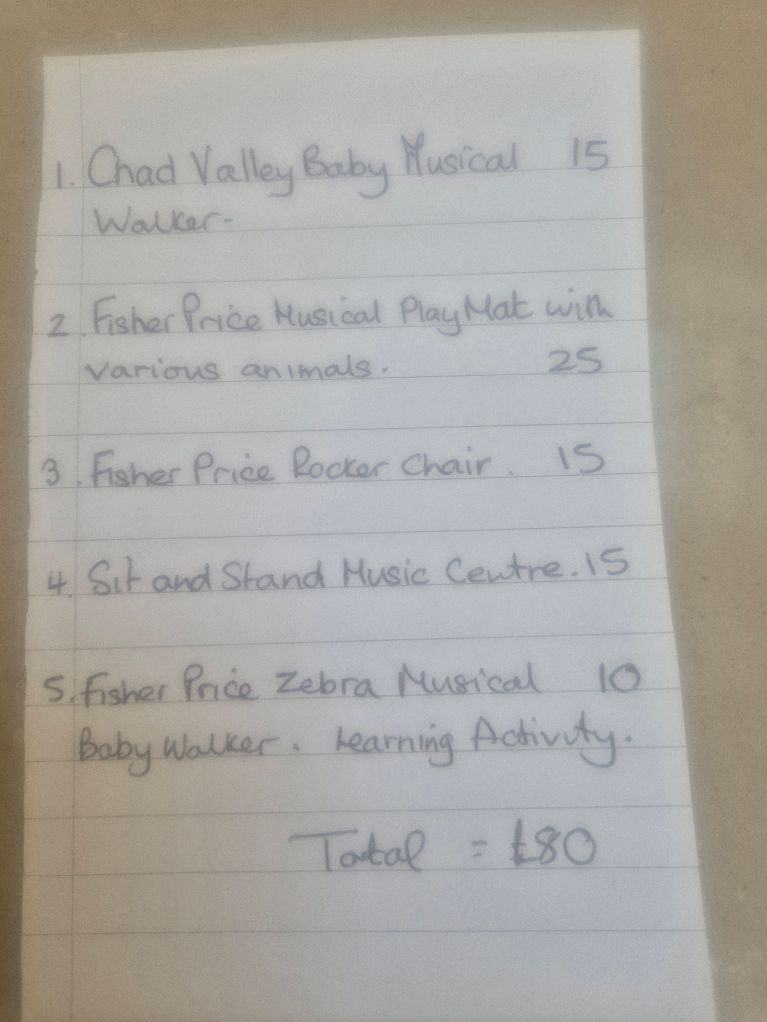 1. Chad Valley Baby Musical 15
Walker-
2. Fisher Price Musical Play Mat with
various animals. 25
3. Fisher Price Rocker Chair. 15
4. Sit and Stand Music Centre. 15
5. Fisher Price Zebra Musical 10
Baby Walker. Learning Activity.
Total = £80